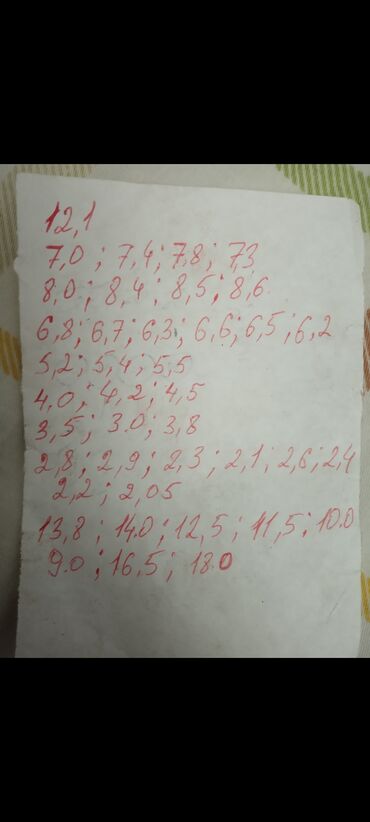 12,1
7,0 ; 7,4 ; 7,8 ; 7,3
8,0 ; 8,4 ; 8,5 ; 8,6
6,8 ; 6,7 ; 6,3 ; 6,6 ; 6,5 ; 6,2
5,2 ; 5,4 ; 5,5
4,0 ; 4,2 ; 4,5
3,5 ; 3.0 ; 3,8
2,8 ; 2,9 ; 2,3 ; 2,1 ; 2,6 ; 2,4
2,2 ; 2,05
13,8 ; 14.0 ; 12,5 ; 11,5 ; 10.0
9.0 ; 16,5 ; 18.0